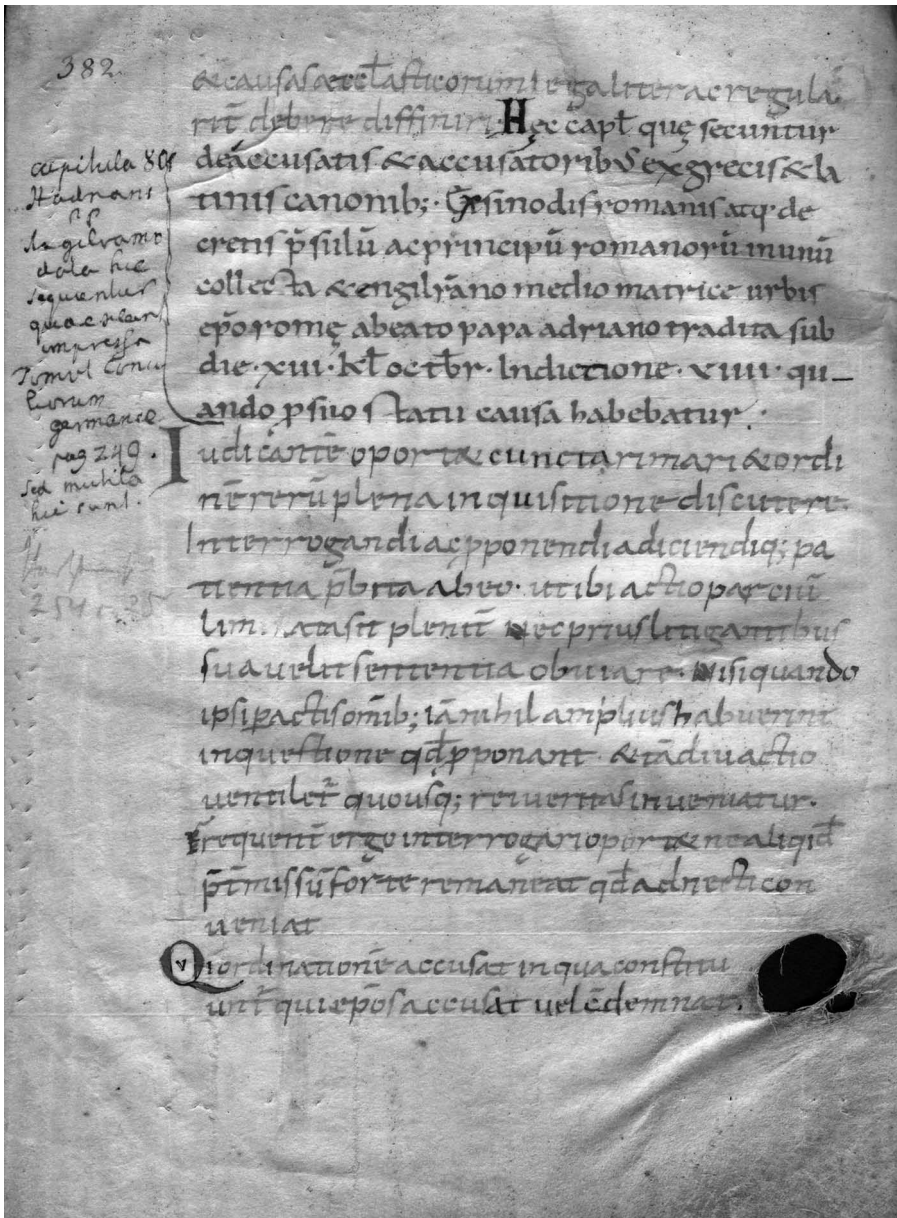 382
& causas aeccl̄asticorum legaliter ac regula
rit̄ debere diffiniri. Hęc capt̄ quę secuntur
de accusatis & accusatorib; ex grecis & la
tinis canonib; & sinodis romanis atq; de
cretis p̄sulū ac principū romanorū munū
collecta & engilrāno mediomatrice urbis
ep̄o romę a beato papa adriano tradita sub
die · xiii · kl̄ octb̄r · Indictione · viiii · qu
ando p suo statu causa habebatur .
Iudicantē oport& cuncta rimari & ordi
nē rerū plena inquisitione discutere.
Interrogandi ac pponendi adiciendiq; pa
tientia p̄bita ab eo · ut ibi actio partiū
lim tata sit plenit̄ Nec prius litigantibus
sua velit sententia obuiare. Nisi quando
ipsi pactis om̄ib; iā nihil amplius habuerint
in questione qd̄ pponant & tādiu actio
uentilet̄ quousq; rei ueritas inueniatur.
Frequent̄ ergo interrogari oport& ne aliqid̄
p̄t̄missū forte remaneat qd̄ adnecti con
ueniat
Qui ordinationē accusat in qua constitu
unt̄ qui ep̄os accusat uel c̄demnat.
capitula 80
Hadriani
PP
data hic
sequentur
quae
impressa
Tomi 1 Conci
liorum
germaniae
pag 249.
sed mutila
hic sunt.